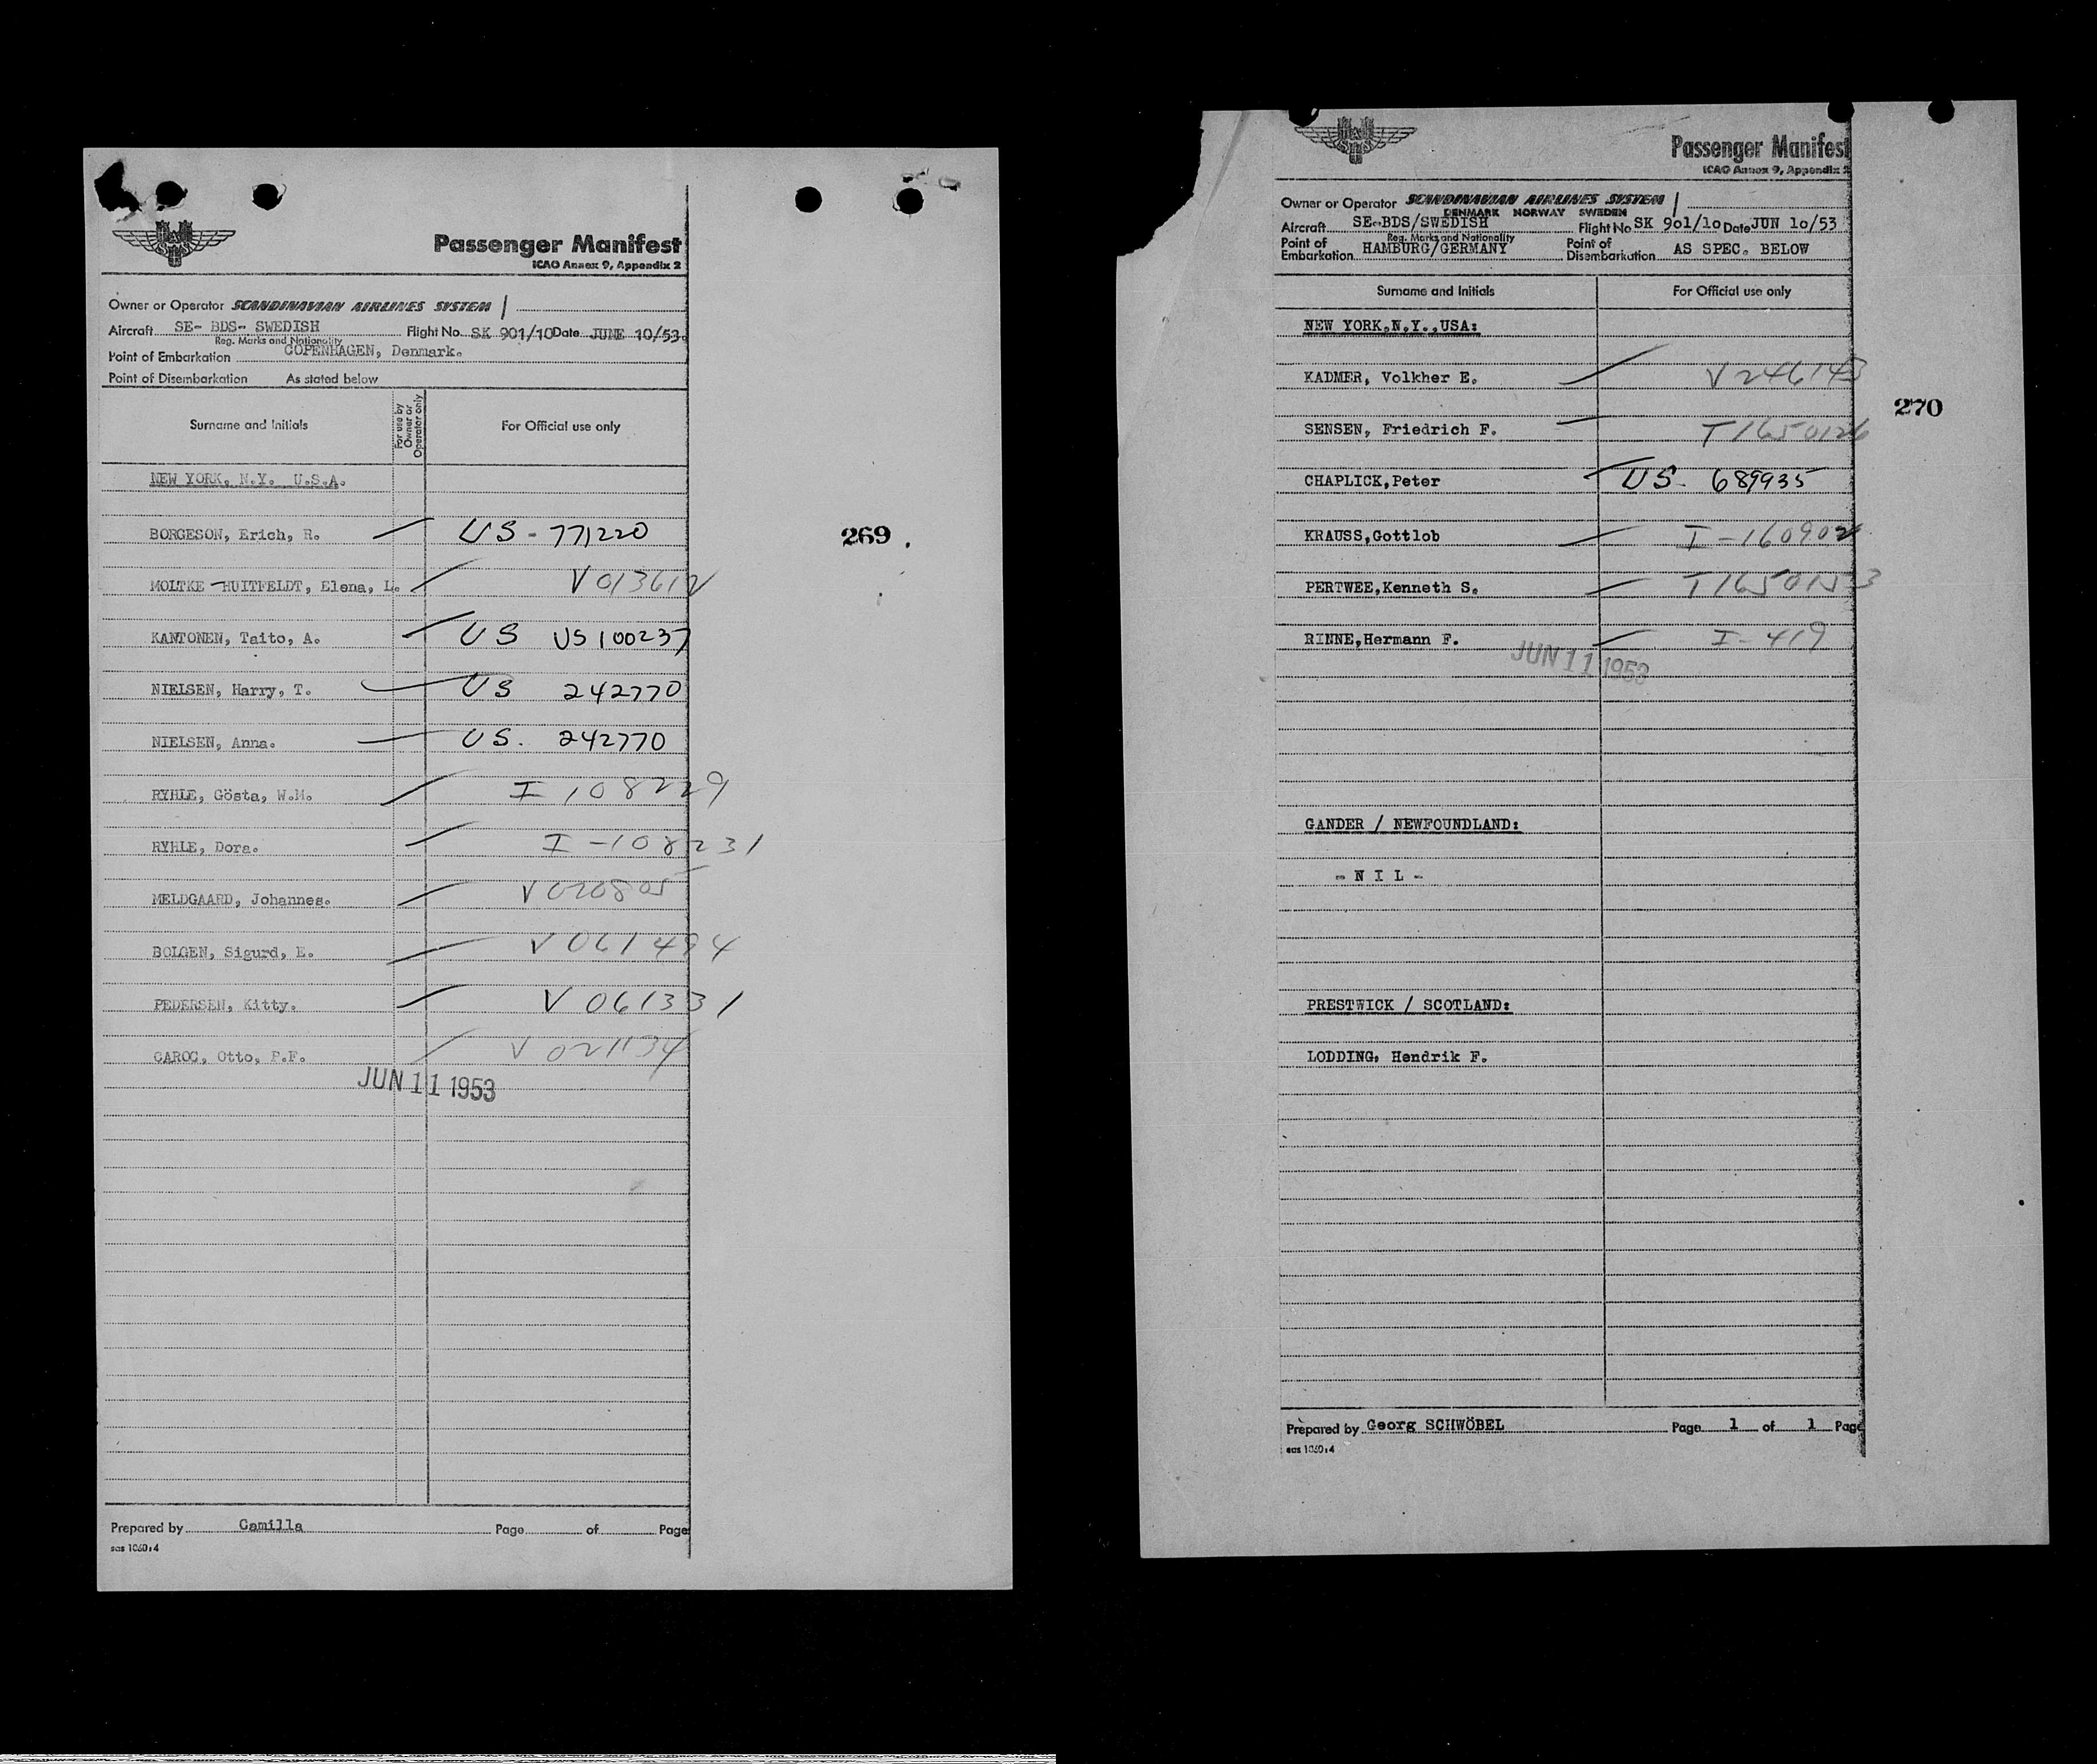 Passenger Manifest
ICAO Annex 9, Appendix 2
Owner or Operator SCANDINAVIAN AIRLINES SYSTEM
Aircraft SE- BDS- SWEDISH Flight No. SK 901/10 Date JUNE 10/53.
Reg. Marks and Nationality
Point of Embarkation COPENHAGEN, Denmark.
Point of Disembarkation As stated below
Surname and Initials For use by Owner or Operator only For Official use only
NEW YORK, N.Y. U.S.A.
BORGESON, Erich, R. US - 771220
269
MOLTKE-HUITFELDT, Elena, L. V 013612
KANTONEN, Taito, A. US US 100237
NIELSEN, Harry, T. US 242770
NIELSEN, Anna. US. 242770
RYHLE, Gösta, W.M. I 108229
RYHLE, Dora. I-108231
MELDGAARD, Johannes. V 020805
BOLGEN, Sigurd, E. V 061494
PEDERSEN, Kitty. V 061331
CAROC, Otto, P.F. V 021134
JUN 11 1953
Prepared by Camilla Page of Page
sas 1060:4
Passenger Manifest
ICAO Annex 9, Appendix 2
Owner or Operator SCANDINAVIAN AIRLINES SYSTEM
DENMARK NORWAY SWEDEN
Aircraft SE-BDS/SWEDISH Flight No SK 901/10 Date JUN 10/53
Reg. Marks and Nationality
Point of Embarkation HAMBURG/GERMANY Point of Disembarkation AS SPEC. BELOW
Surname and Initials For Official use only
NEW YORK,N.Y.,USA:
KADMER, Volkher E. V 246143
270
SENSEN, Friedrich F. T1650126
CHAPLICK,Peter US- 689935
KRAUSS,Gottlob I-160902
PERTWEE,Kenneth S. T1650153
RINNE,Hermann F. I-419
JUN 11 1953
GANDER / NEWFOUNDLAND:
- N I L -
PRESTWICK / SCOTLAND:
LODDING, Hendrik F.
Prepared by Georg SCHWÖBEL Page 1 of 1 Page
sas 1060:4